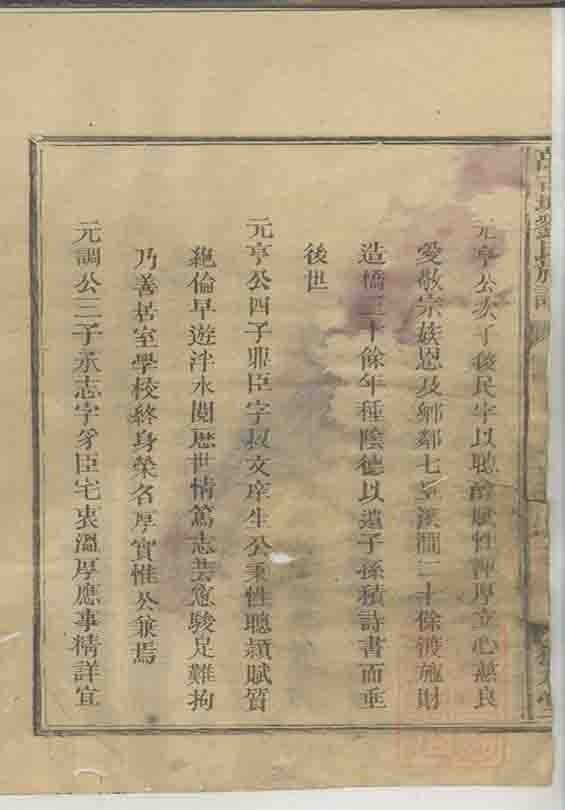 元亨公次子後民字以聰醇賦性渾厚立心慈良
愛敬宗族恩及鄉鄰七里溪澗二十餘渡施財
造橋三十餘年種陰德以遺子孫積詩書而垂
後世
元亨公四子鼎臣字叔文庠生公秉性聰穎賦質
絶倫早遊泮水閱歷世情篤志芸窓駿足難拘
乃善居室學校終身榮名厚實惟公兼焉
元調公三子承志字豸臣宅衷溫厚應事精詳宜